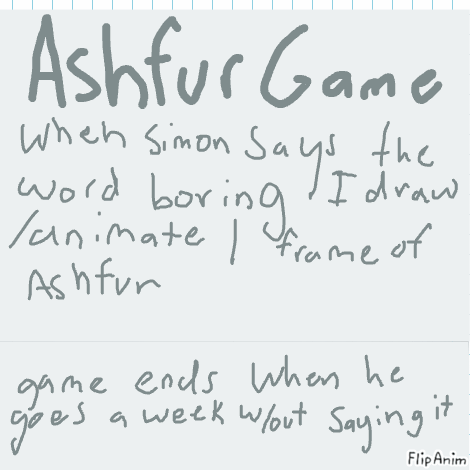 Ashfur Game
When Simon Says the
word boring I draw
/animate 1 frame of
Ashfur
game ends when he
goes a week w/out saying it
FlipAnim